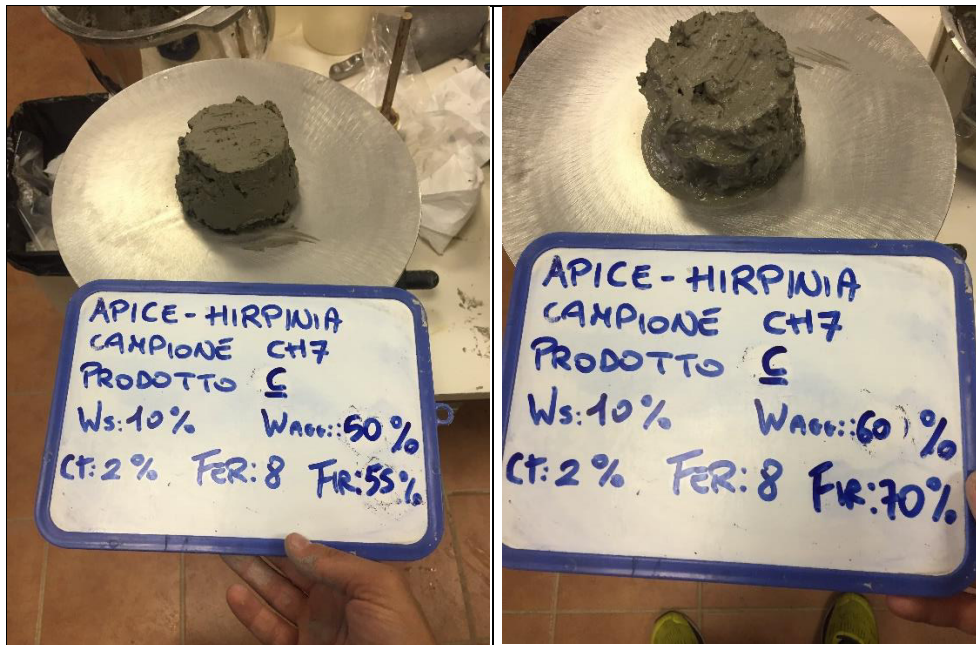 APICE-HIRPINIA
CAMPIONE CH7
PRODOTTO C
Ws:10% WAGG::50%
Ct:2% FER:8 FIR:55%
APICE-HIRPINIA
CAMPIONE CH7
PRODOTTO C
Ws:10% WAGG::60%
Ct:2% FER:8 FIR:70%